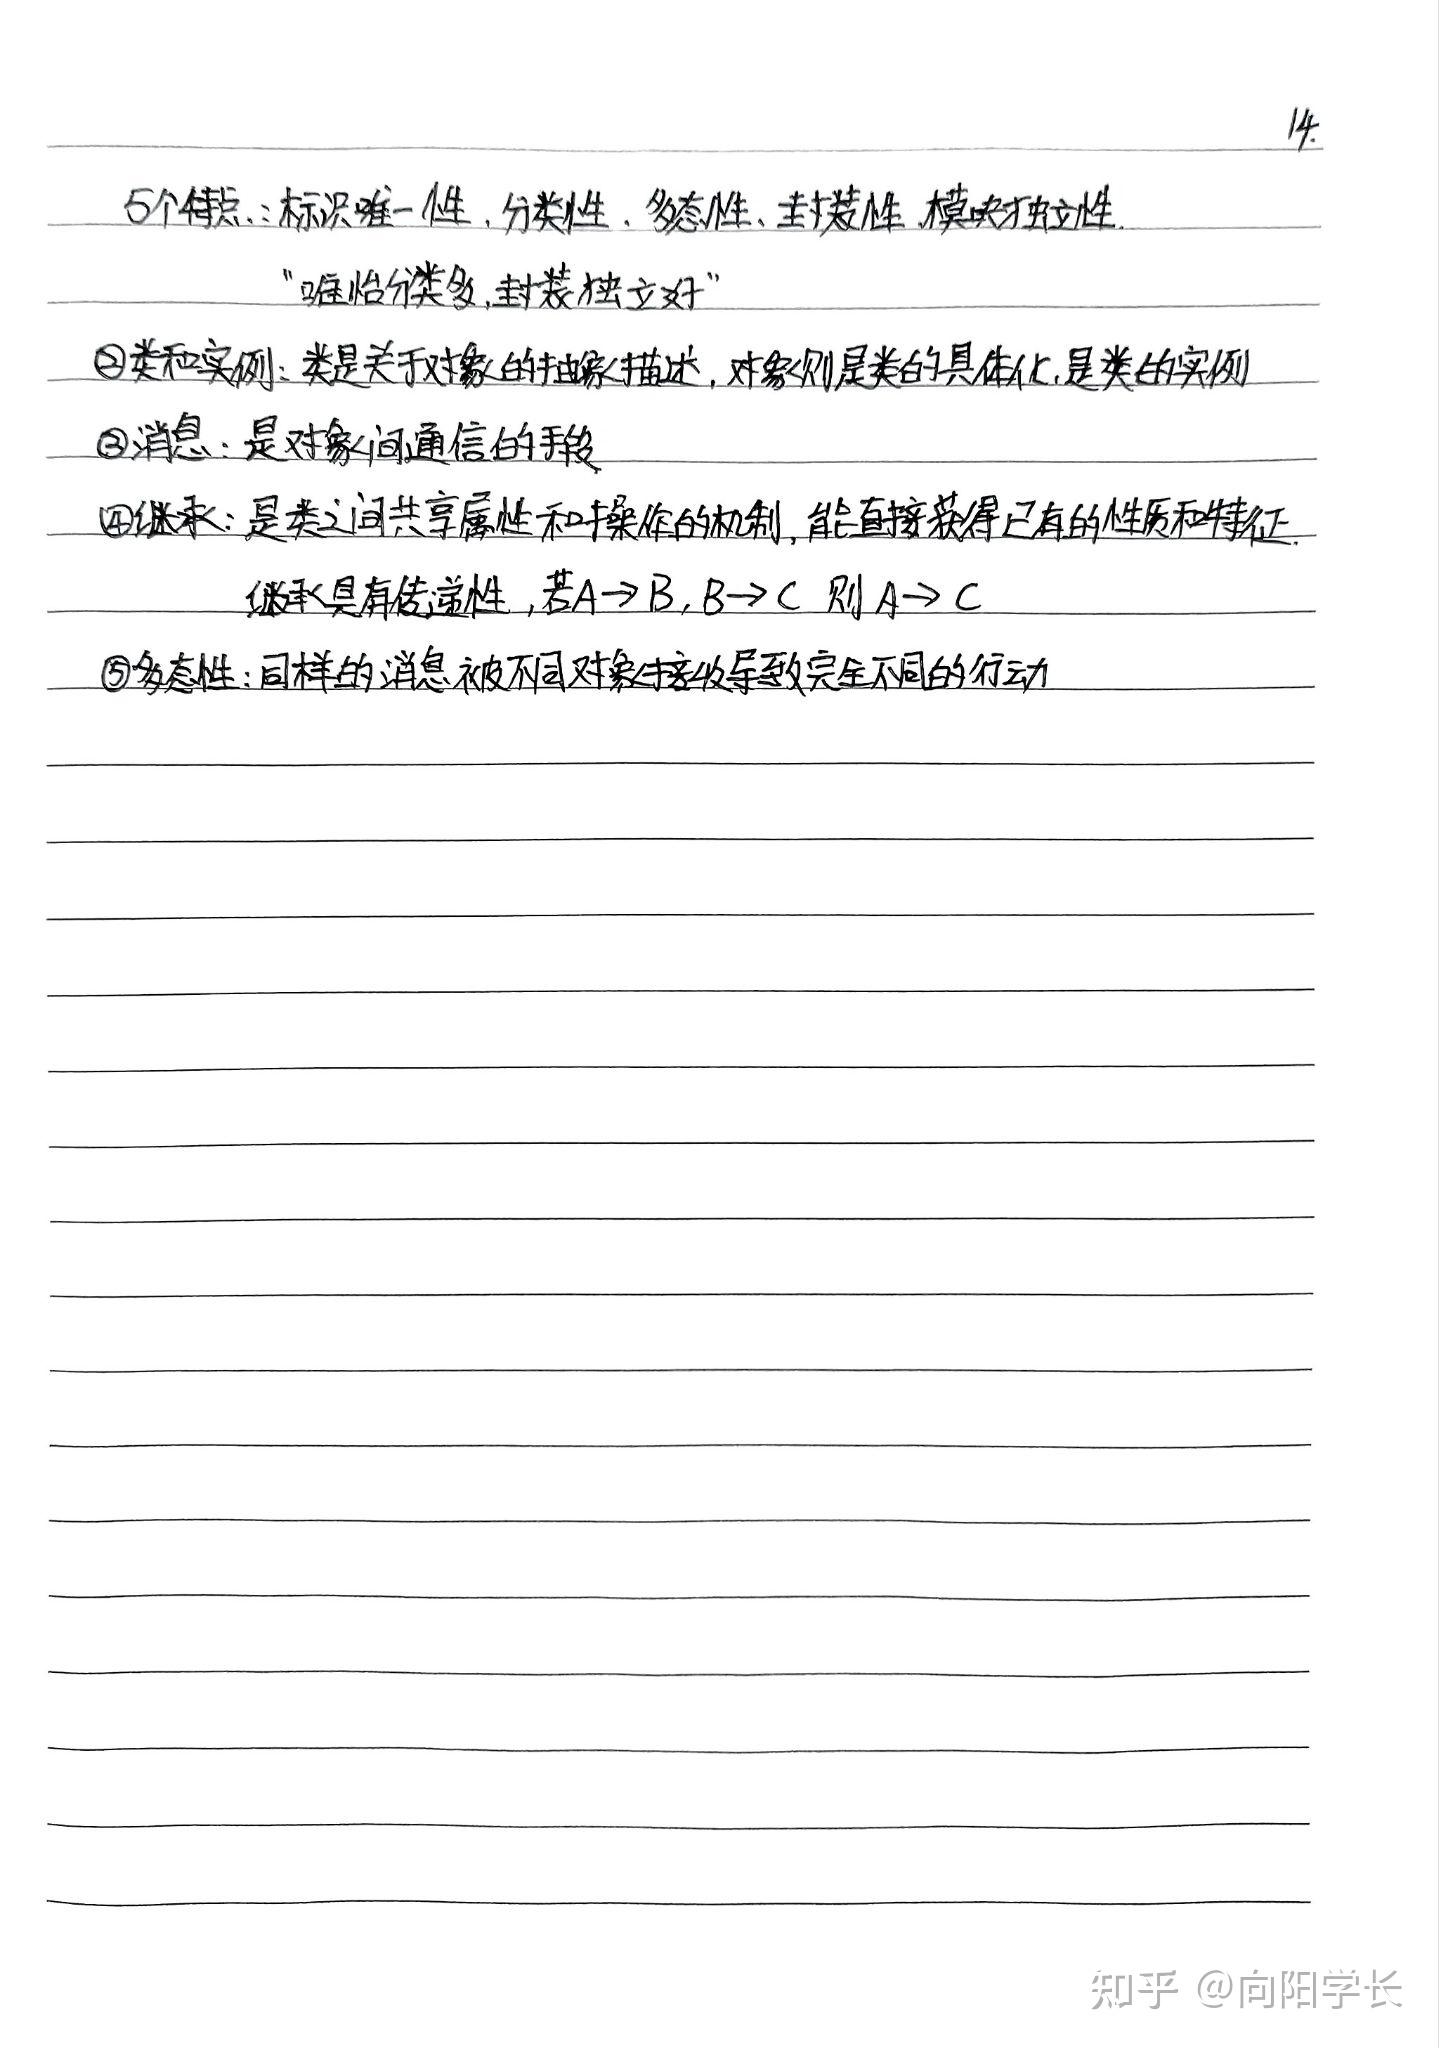 14.
5个特点：标识唯一性、分类性、多态性、封装性、模块独立性.
“唯怡分类多,封装独立好”
②类和实例：类是关于对象的抽象描述，对象则是类的具体化,是类的实例
③消息：是对象间通信的手段
④继承：是类之间共享属性和操作的机制，能直接获得已有的性质和特征.
继承具有传递性，若A→B，B→C 则 A→C
⑤多态性：同样的消息被不同对象接收导致完全不同的行动
知乎 @向阳学长